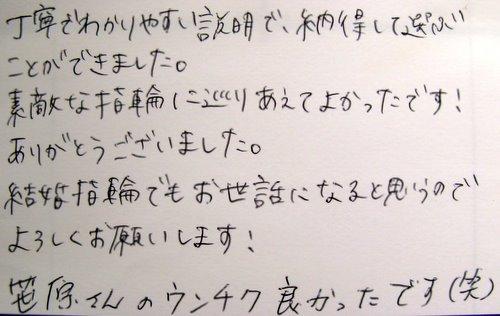 丁寧でわかりやすい説明で、納得して選ぶ
ことができました。
素敵な指輪に巡りあえてよかったです！
ありがとうございました。
結婚指輪でもお世話になると思うので
よろしくお願いします！
笹原さんのウンチク良かったです(笑)